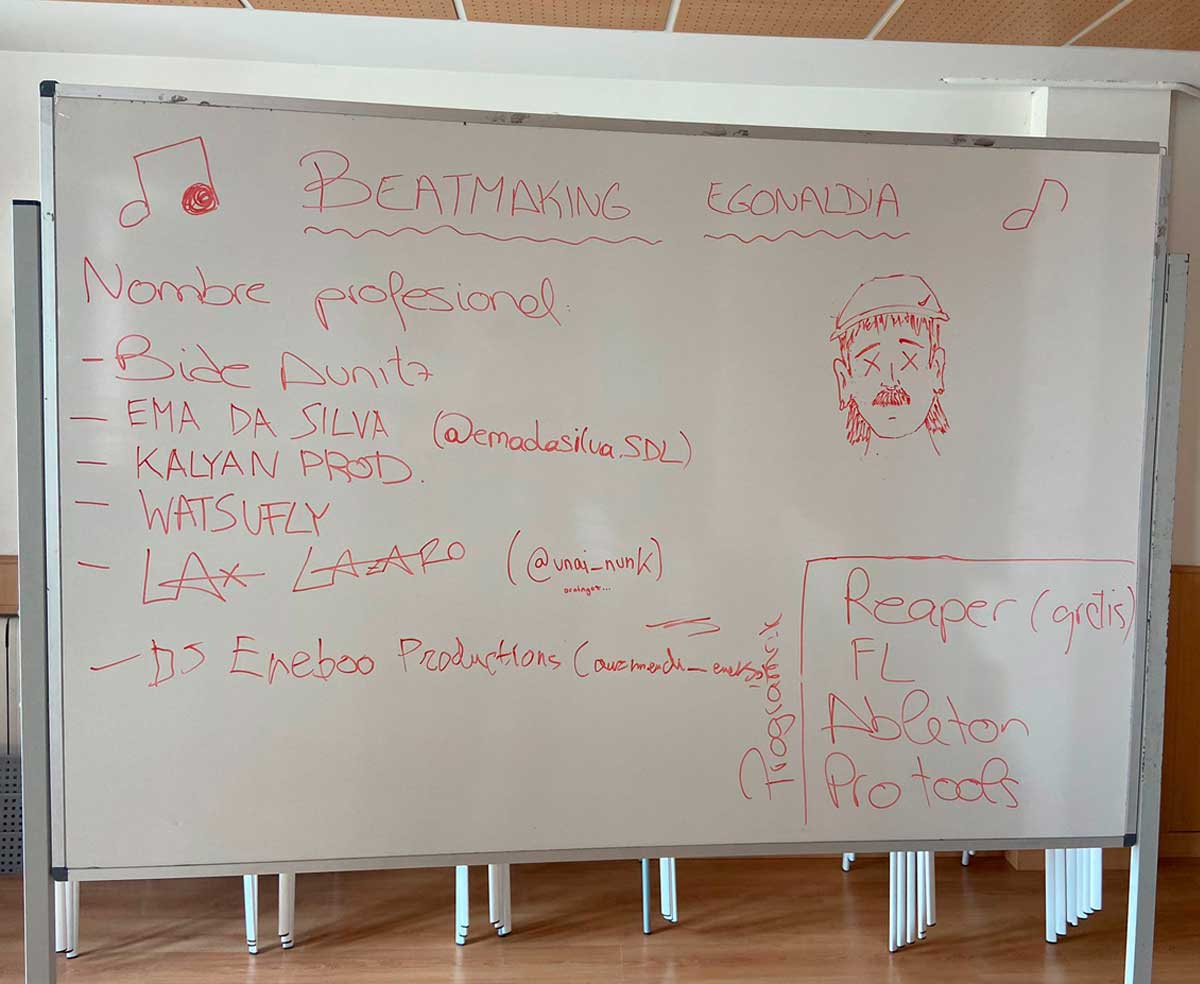 BEATMAKING EGONALDIA
Nombre profesional:
- Bide Dunitz
- EMA DA SILVA (@emadasilva.SDL)
- KALYAN PROD.
- WATSUFLY
- LAX LAZARO (@unai_nunk)
- DJ Eneboo Productions
Reaper (gratis)
FL
Ableton
Pro tools